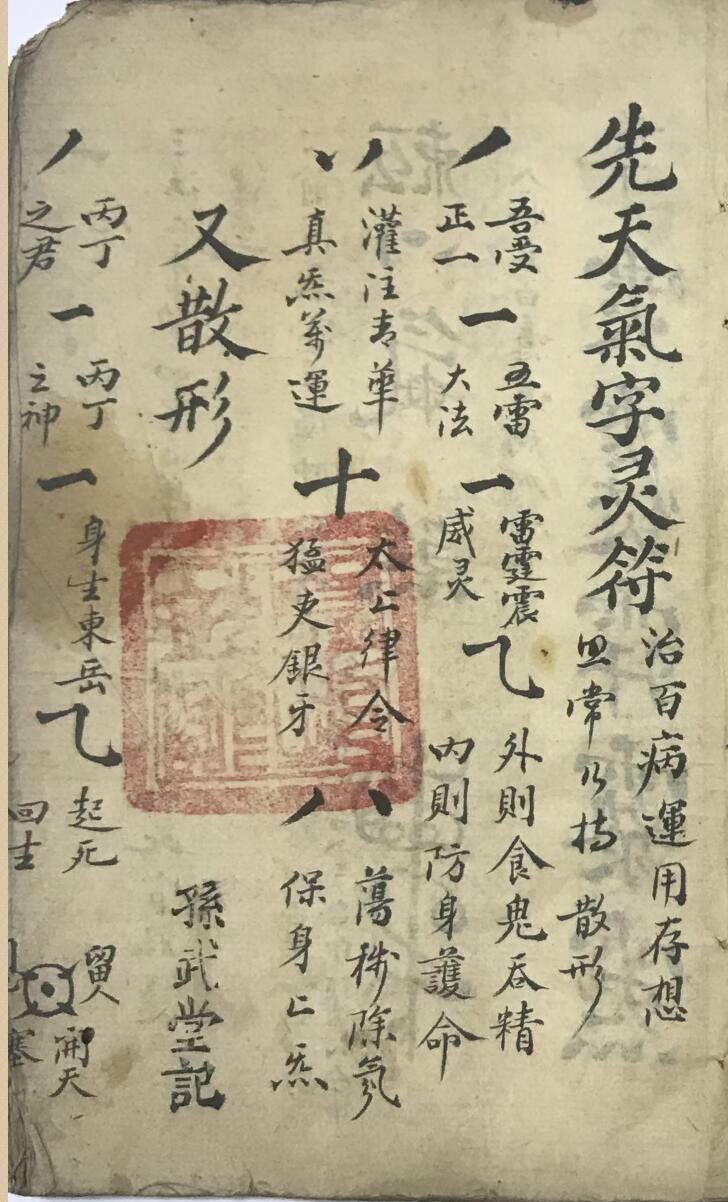 先天氣字灵符
治百病運用存想
且常乃持 散形
丿 吾受
正一
一 五雷
大法
一 雷霆震
威灵
乙 外則食鬼吞精
內則防身護命
丷 灌注青華
真炁萬運
十 太上律令
猛吏銀牙
八 蕩穢除氛
保身上炁
又散形
孫武堂記
丿 丙丁
之君
一 丙丁
之神
一 身生東岳
乙 起死
回生
留人
開天
塞